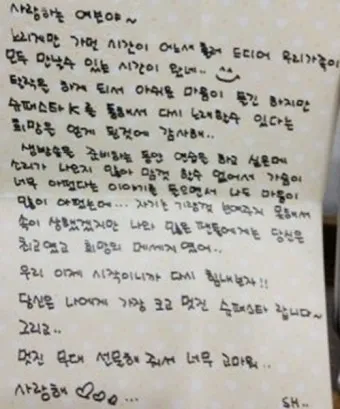 사랑하는 여보야~
느리게만 가던 시간이 어느새 흘러 드디어 우리가족이
모두 만날수 있는 시간이 왔네..
탈락은 하게 되서 아쉬운 마음이 들긴 하지만
슈퍼스타K를 통해서 다시 노래할수 있다는
희망을 얻게 된것에 감사해..
생방송을 준비하는 동안 연습은 하고 싶은데
소리가 나오지 않아 맘껏 할수 없어서 가슴이
너무 아팠다는 이야기를 들으면서 나도 마음이
많이 아팠는데... 자기는 기량껏 보여주지 못해서
속이 상했겠지만 나와 많은 팬들에게는 당신은
최고였고 희망의 메세지였어..
우리 이제 시작이니까 다시 힘내보자!!
당신은 나에게 가장 크고 멋진 슈퍼스타 랍니다~
그리고..
멋진 무대 선물해 줘서 너무 고마워..
사랑해 ♡♡♡...
SH..